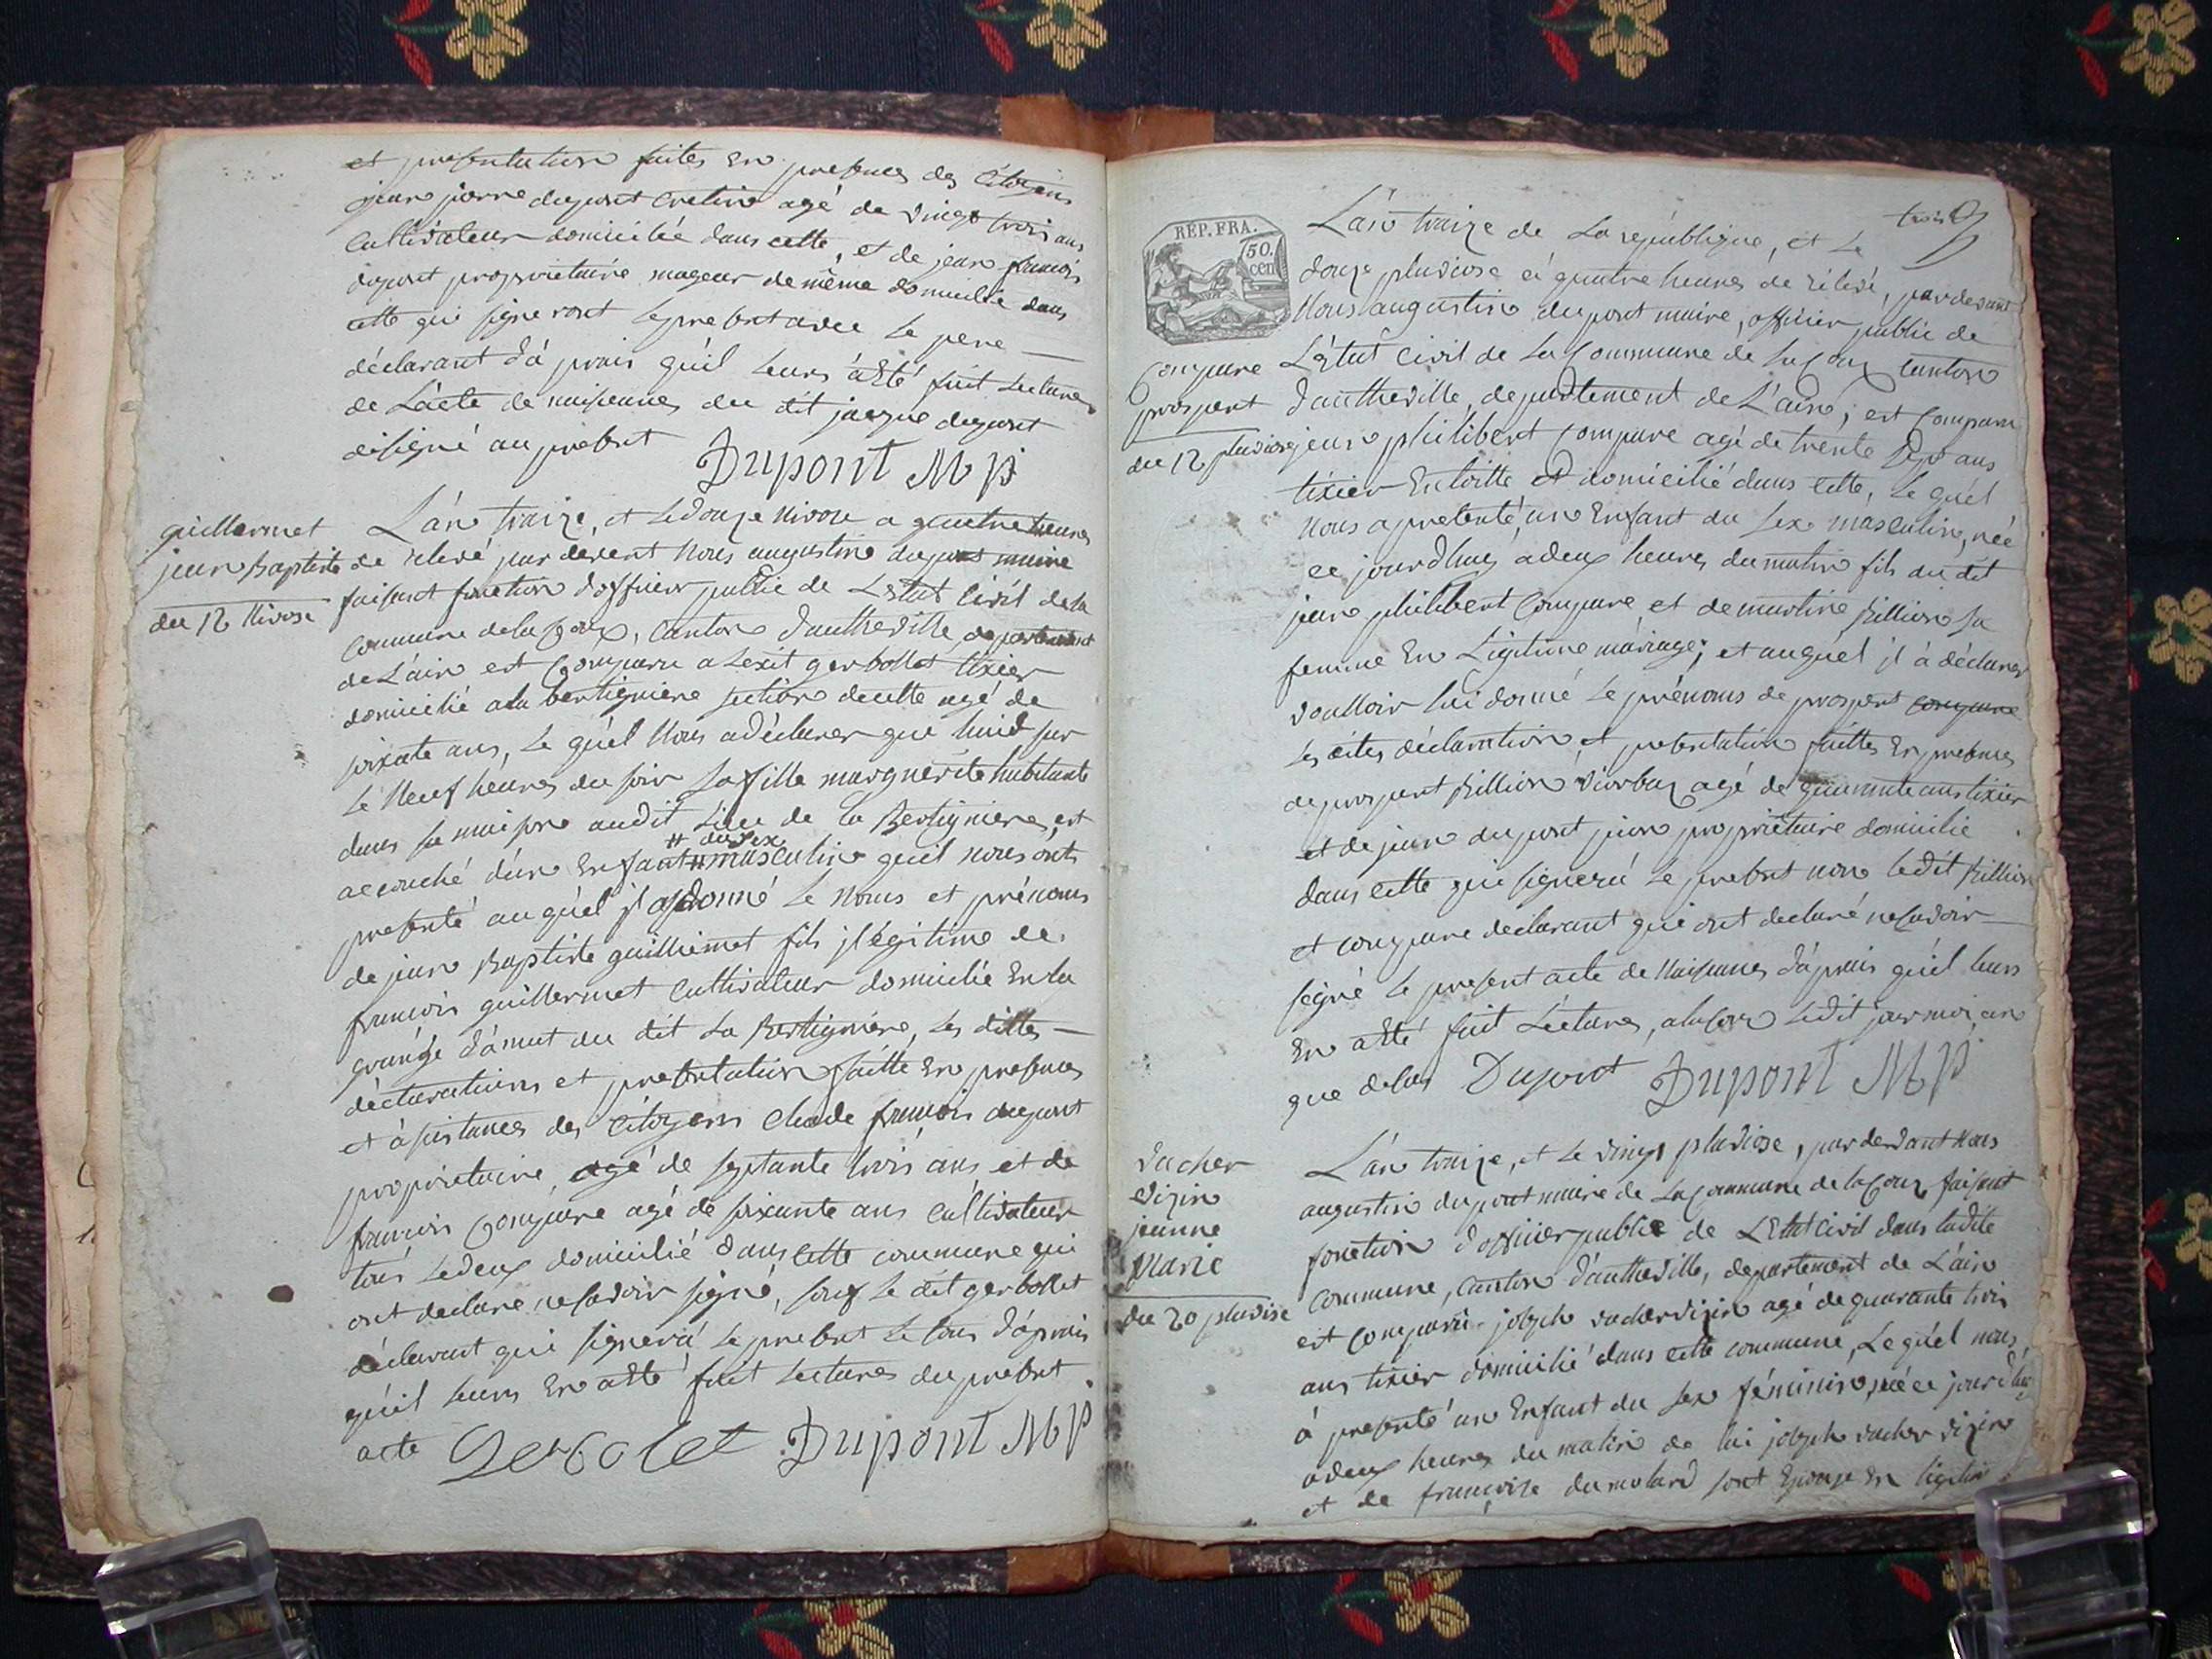 et presentation faites en presences des Citoyens
jean pierre dupont Cretin agé de vingt trois ans
Cultivateur domicilié dans cette, et de jean francois
dupont proprietaire mageur de même domicilié dans
cette qui signeront le present avec le pere —
déclarant d'à prais qu'il leurs à Eté fait Lectures
de L'acte de naisances du dit jacque dupont
et signé au present Dupont M p
guillermet
jean Baptiste
du 12 Nivose
L'an traize, et le douze nivose a quatre heures
de relevé par devent Nous augustin dupont maire
faisant fonction d'officier public de L'Etat Civil de la
Commune de lacoux, Canton d'hauteville, departement
de L'ain est Comparu alexit gerbollet tixier
domicilié a la bertigniere section de cette agé de
soixente ans, le quel Nous a déclarer que huid sur
le Neuf heures du soir sa fille marguerite habitante
dans sa maison au dit Lieu de la Bertigniere, est
# du sex
accouché d'un Enfant # masculin qu'il nous onts
presenté au quel jl a donné le Noms et prénoms
de jean Baptiste guilliermet fils jlégitime de
francois guillermet cultivateur domicilié En la
grange d'amut du dit La Bertigniere, les dittes —
déclarations et presentation faitte En presences
et àsistances des Citoyens Claude francois dupont
propriétaire, agé de septante trois ans et de
francois Compare agé de soixante ans cultivateur
tous le deux domicilié dans cette commune qui
ont declare ne savoir signé, souf le dit gerbollet
déclarant qui signera le present le tous d'àprais
qu'il leurs En a Eté fait Lectures du present
acte Gerbolet Dupont M P
trois
RÉP. FRA.
50.
cen
Compare
prospert
du 12 pluviose
L'an traize de La république, et le
douze pluviose à quatre heures de rélevé, par devant
Nous augustin dupont maire, officier public de
L'état Civil de La Commune de lacoux canton
d'hautheville, departement de L'ain; est Comparu
jean philibert Compare agé de trente sept ans
tixier En toille et domicilié dans cette, le quel
Nous a presenté un Enfant du sex masculin, née
ce jourd'huy a deux heures du matin fils du dit
jean philibert Compare et de martine Billion sa
femme En Légitime mariage; et auquel jl à déclarer
voulloir lui donné le prénoms de prospert compare
les dites déclaration et presentation faittes En presences
de prospert Billion agé de quarante ans tixier
et de jean dupont jean propriétaire domicilie
dans cette qui signera le present non ledit Billion
et compare declarant qui ont declaré ne savoir —
signé le present acte de Naisances d'àprais qu'il leurs
En a Eté fait Léctures, a lacoux ledit jour moi, an
que delas Dupont Dupont M P
Vacher
Vizin
jeanne
Marie
du 20 pluviose
L'an traize, et le vingt pluviose, par devant Nous
augustin dupont maire de La Commune de lacoux faisant
fonction d'officier public de L'Etat Civil dans ladite
Commune, Canton d'hautheville, departement de L'ain
est comparu joseph vacher vizin agé de quarante trois
ans tixier domicilié dans cette commune, Le quel nous
à presenté un Enfant du sex féminin, née ce jourd'hui
a deux heures du matin de lui joseph vacher vizin
et de françoise dumolard sont Epouse En Légitim